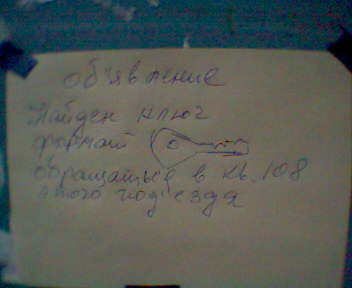 объявление
Найден ключ
формой
обращаться в кв. 108
этого подъезда